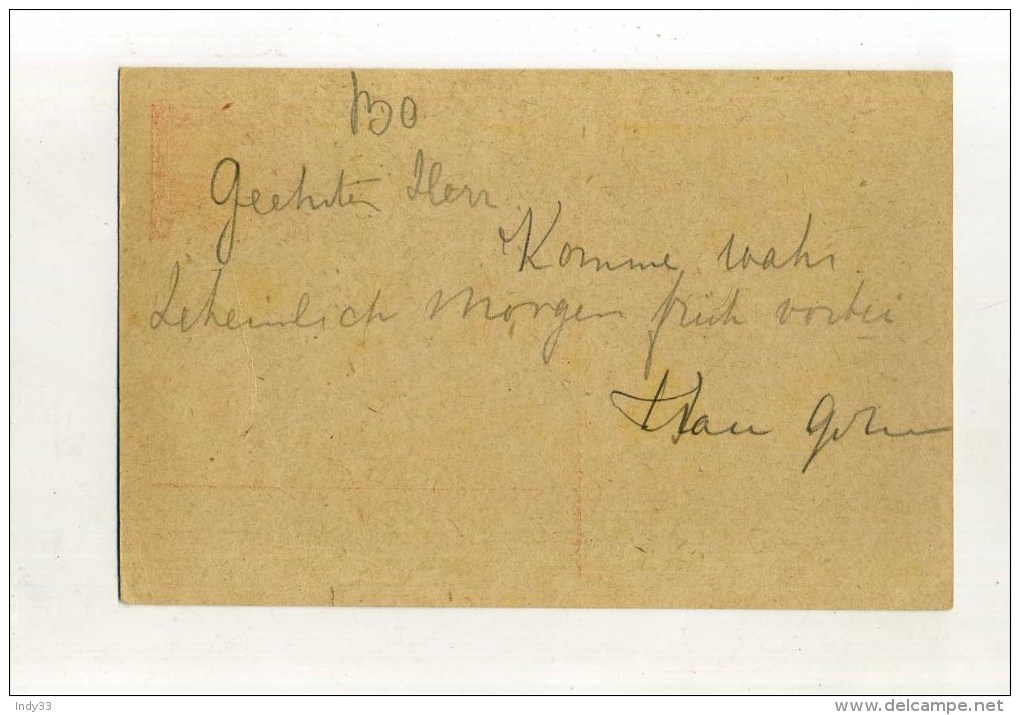 Geehrter Herr
Komme wahr
scheinlich Morgen früh vorbei
Indy33
delcampe.net